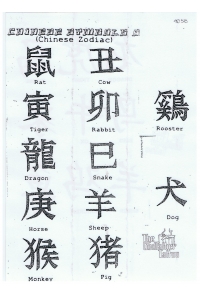 CHINESE SYMBOLS
(Chinese Zodiac)
鼠 丑
Rat Cow
寅 卯 鷄
Tiger Rabbit Rooster
龍 巳
Dragon Snake
庚 羊 犬
Horse Sheep Dog
猴 猪
Monkey Pig